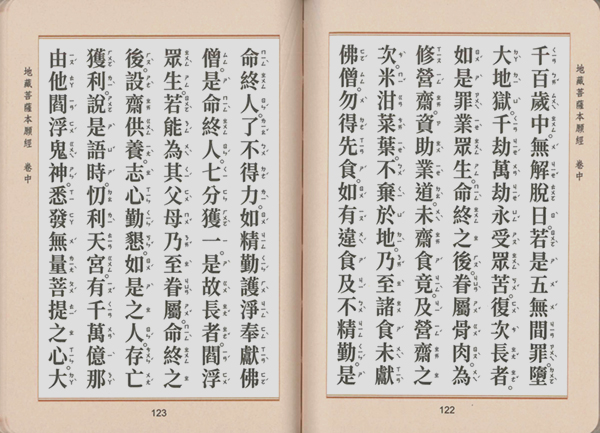 地藏菩薩本願經 卷中
千百歲中。無解脫日。若是五無間罪。墮
大地獄。千劫萬劫。永受眾苦。復次長者。
如是罪業眾生。命終之後。眷屬骨肉。為
修營齋。資助業道。未齋食竟。及營齋之
次。米泔菜葉。不棄於地。乃至諸食。未獻
佛僧。勿得先食。如有違食。及不精勤。是
122
命終人。了不得力。如精勤護淨。奉獻佛
僧。是命終人。七分獲一。是故長者。閻浮
眾生。若能為其父母。乃至眷屬。命終之
後。設齋供養。志心勤懇。如是之人。存亡
獲利。說是語時。忉利天宮。有千萬億那
由他閻浮鬼神。悉發無量菩提之心。大
地藏菩薩本願經 卷中
123